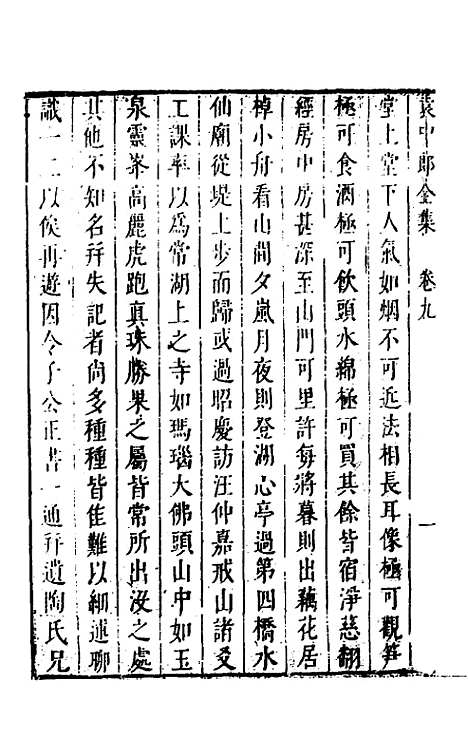 袁中郎全集 卷九 一
堂上堂下人氣如烟不可近法相長耳像極可觀笋
極可食酒極可飲頭水綿極可買其餘皆宿淨慈翻
經房中房甚深至山門可里許每將暮則出藕花居
棹小舟看山間夕嵐月夜則登湖心亭過第四橋水
仙廟從堤上步而歸或過昭慶訪汪仲嘉戒山諸爻
工課率以爲常湖上之寺如瑪瑙大佛頭山中如玉
泉靈峯高麗虎跑真珠勝果之屬皆常所出汝之處
其他不知名并失記者尚多種種皆佳難以細述聊
識一二以俟再遊因令子公正書一通并遺陶氏兄